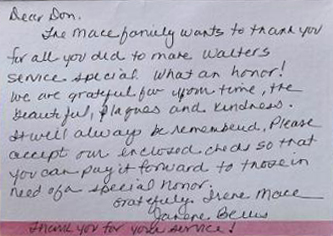 Dear Don,
The Mace family wants to thank you
for all you did to make Walters
service special. What an honor!
We are grateful for your time, the
beautiful, plaques and kindness.
It will always be remembered, Please
accept our enclosed check so that
you can pay it forward to those in
need of a special honor.
Gratefully, Irene Mace
Janene
Thank you for your service!